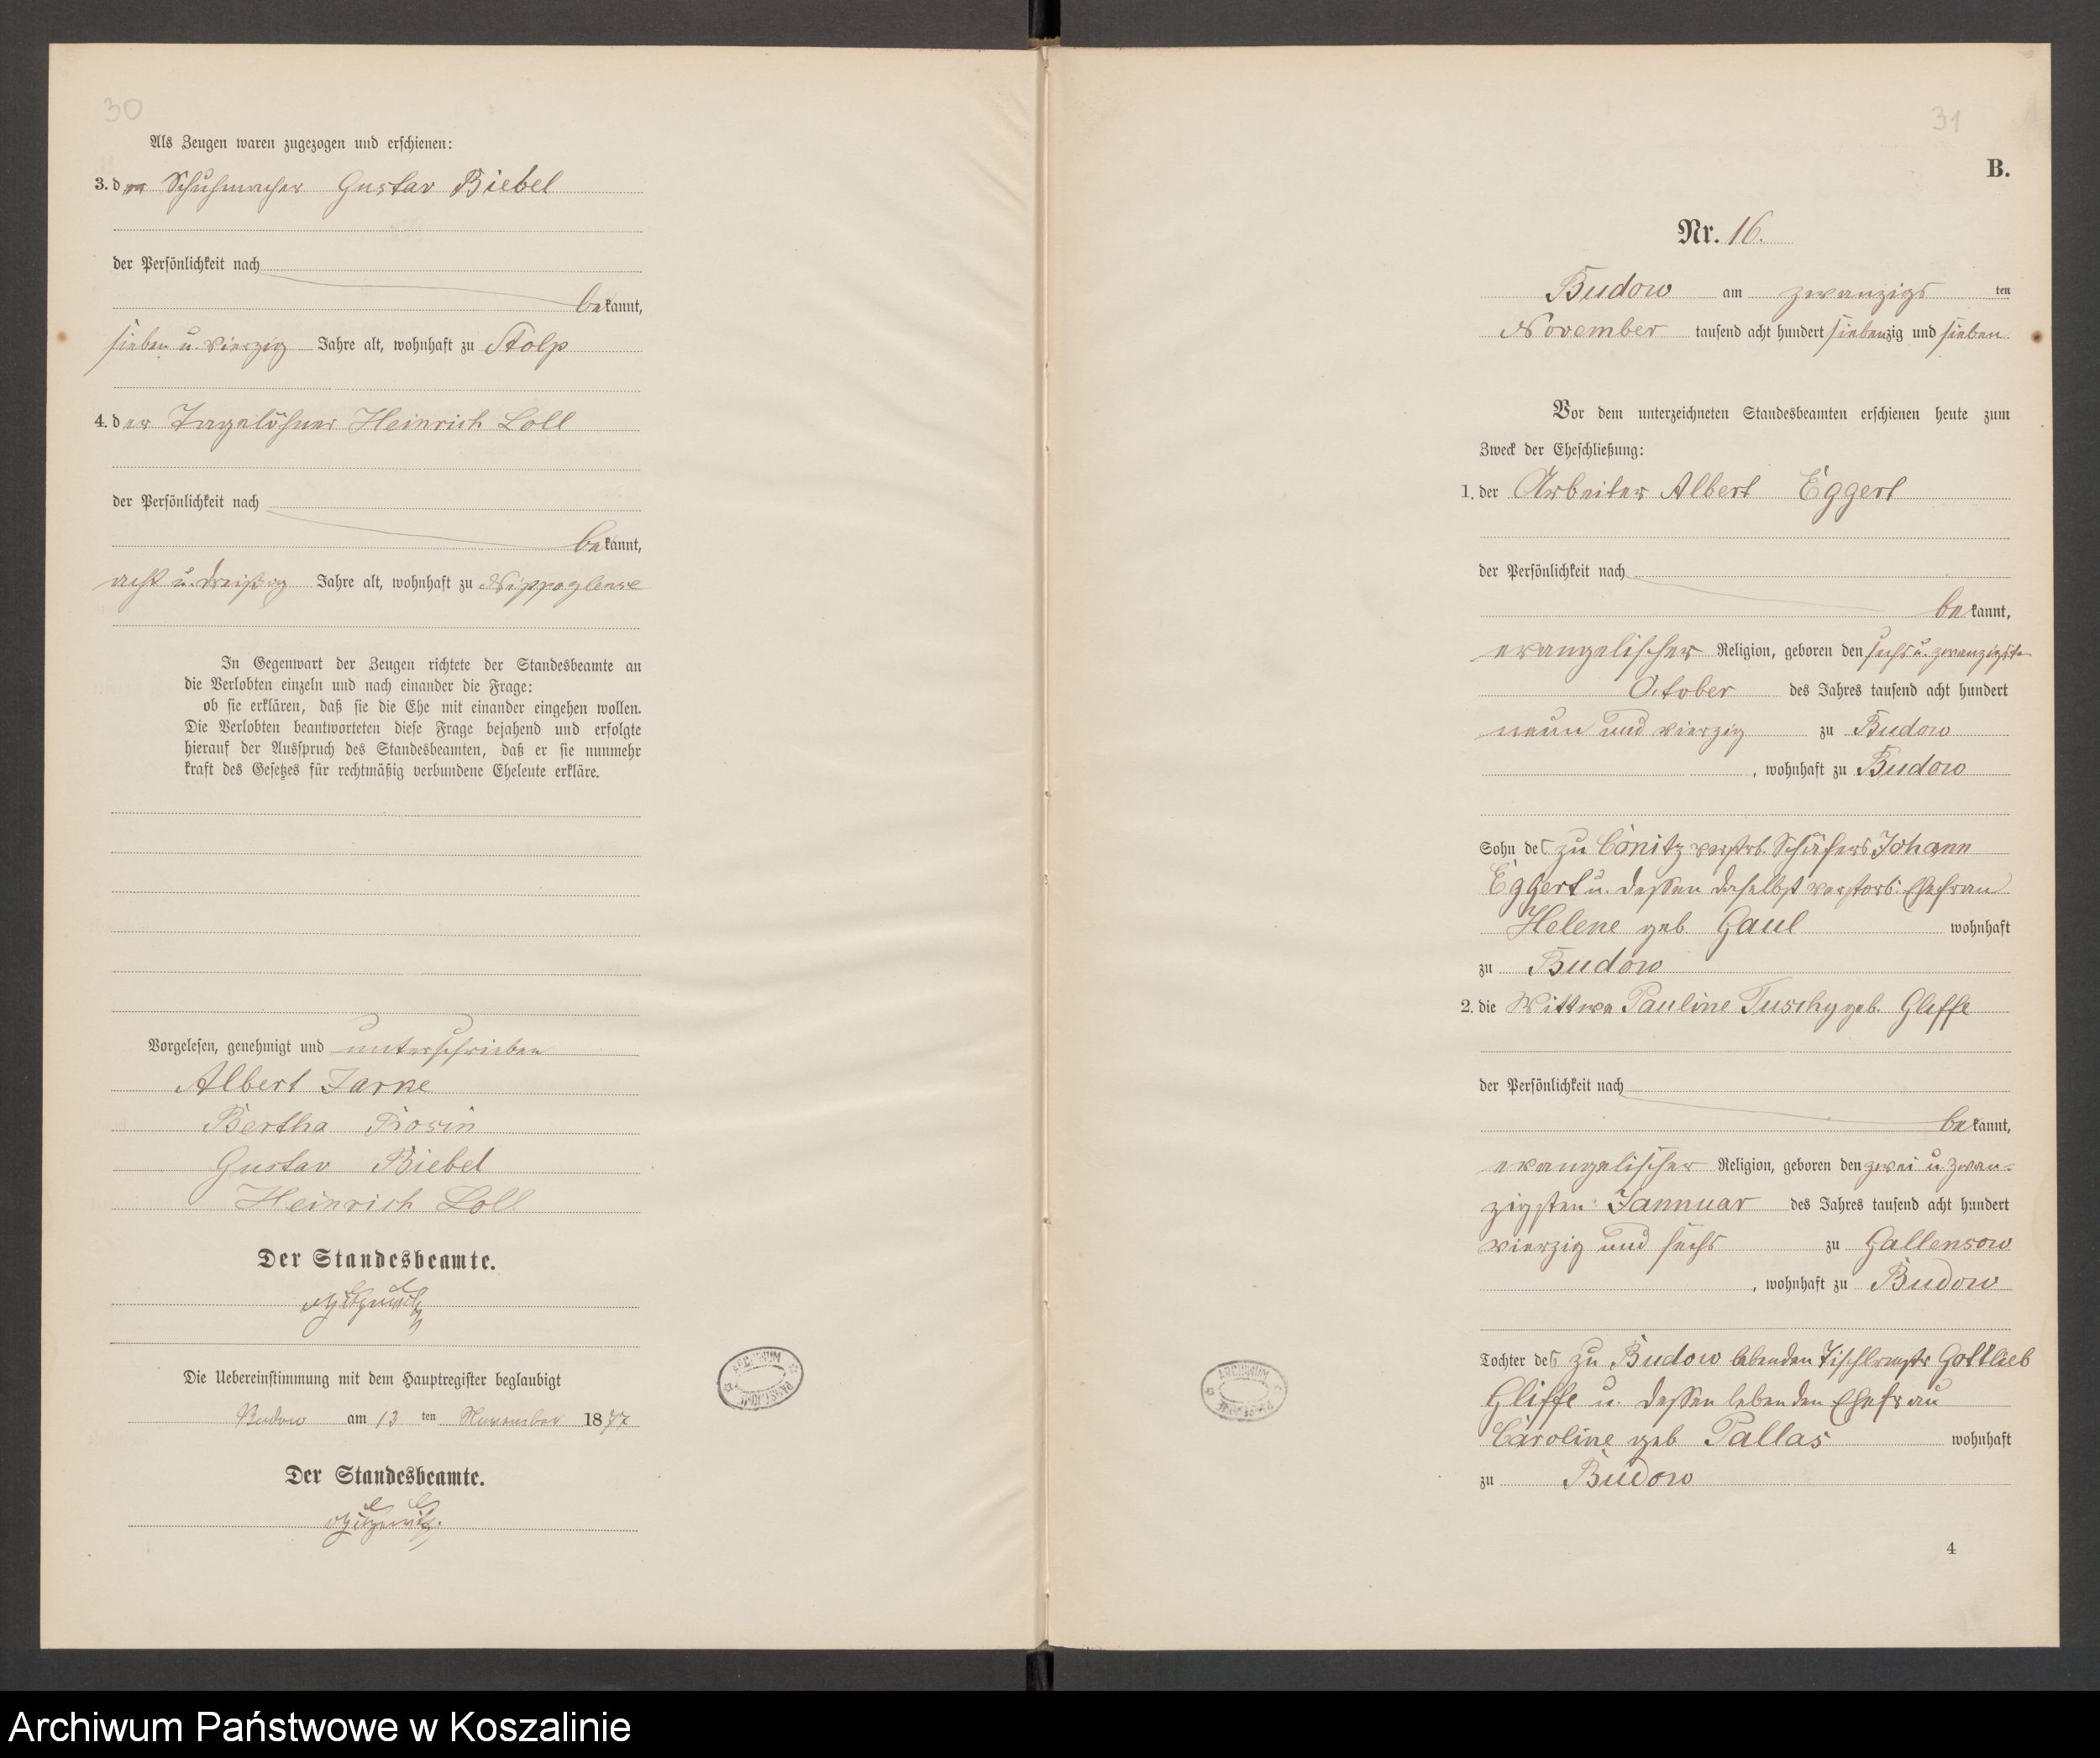 30
Als Zeugen waren zugezogen und erschienen:
3. der Schuhmacher Gustav Biebel
der Persönlichkeit nach
bekannt,
sieben u. vierzig Jahre alt, wohnhaft zu Stolp
4. der Tagelöhner Heinrich Loll
der Persönlichkeit nach
bekannt,
acht u. dreißig Jahre alt, wohnhaft zu Nippoglense
In Gegenwart der Zeugen richtete der Standesbeamte an
die Verlobten einzeln und nach einander die Frage:
ob sie erklären, daß sie die Ehe mit einander eingehen wollen.
Die Verlobten beantworteten diese Frage bejahend und erfolgte
hierauf der Ausspruch des Standesbeamten, daß er sie nunmehr
kraft des Gesetzes für rechtmäßig verbundene Eheleute erkläre.
Vorgelesen, genehmigt und unterschrieben
Albert Jarke
Bertha Rosin
Gustav Biebel
Heinrich Loll
Der Standesbeamte.
Die Uebereinstimmung mit dem Hauptregister beglaubigt
Budow am 13 ten November 1877
Der Standesbeamte.
ARCHIWUM
31
B.
Nr. 16.
Budow am zwanzigs ten
November tausend acht hundert siebenzig und sieben
Vor dem unterzeichneten Standesbeamten erschienen heute zum
Zweck der Eheschließung:
1. der Arbeiter Albert Eggert
der Persönlichkeit nach
bekannt,
evangelischer Religion, geboren den sechs u. zwanzigste
October des Jahres tausend acht hundert
neun und vierzig zu Budow
, wohnhaft zu Budow
Sohn des zu Conitz verstrb. Schäfers Johann
Eggert u. dessen daselbst verstorb. Ehefrau
Helene geb. Gaul wohnhaft
zu Budow
2. die Wittwe Pauline Tuschy geb. Gliffe
der Persönlichkeit nach
bekannt,
evangelischer Religion, geboren den zwei u. zwan-
zigsten Jannuar des Jahres tausend acht hundert
vierzig und sechs zu Gallensow
, wohnhaft zu Budow
Tochter des zu Budow lebenden Tischlermstr Gottlieb
Gliffe u. dessen lebenden Ehefrau
Caroline geb Pallas wohnhaft
zu Budow
4
ARCHIWUM
Archiwum Państwowe w Koszalinie